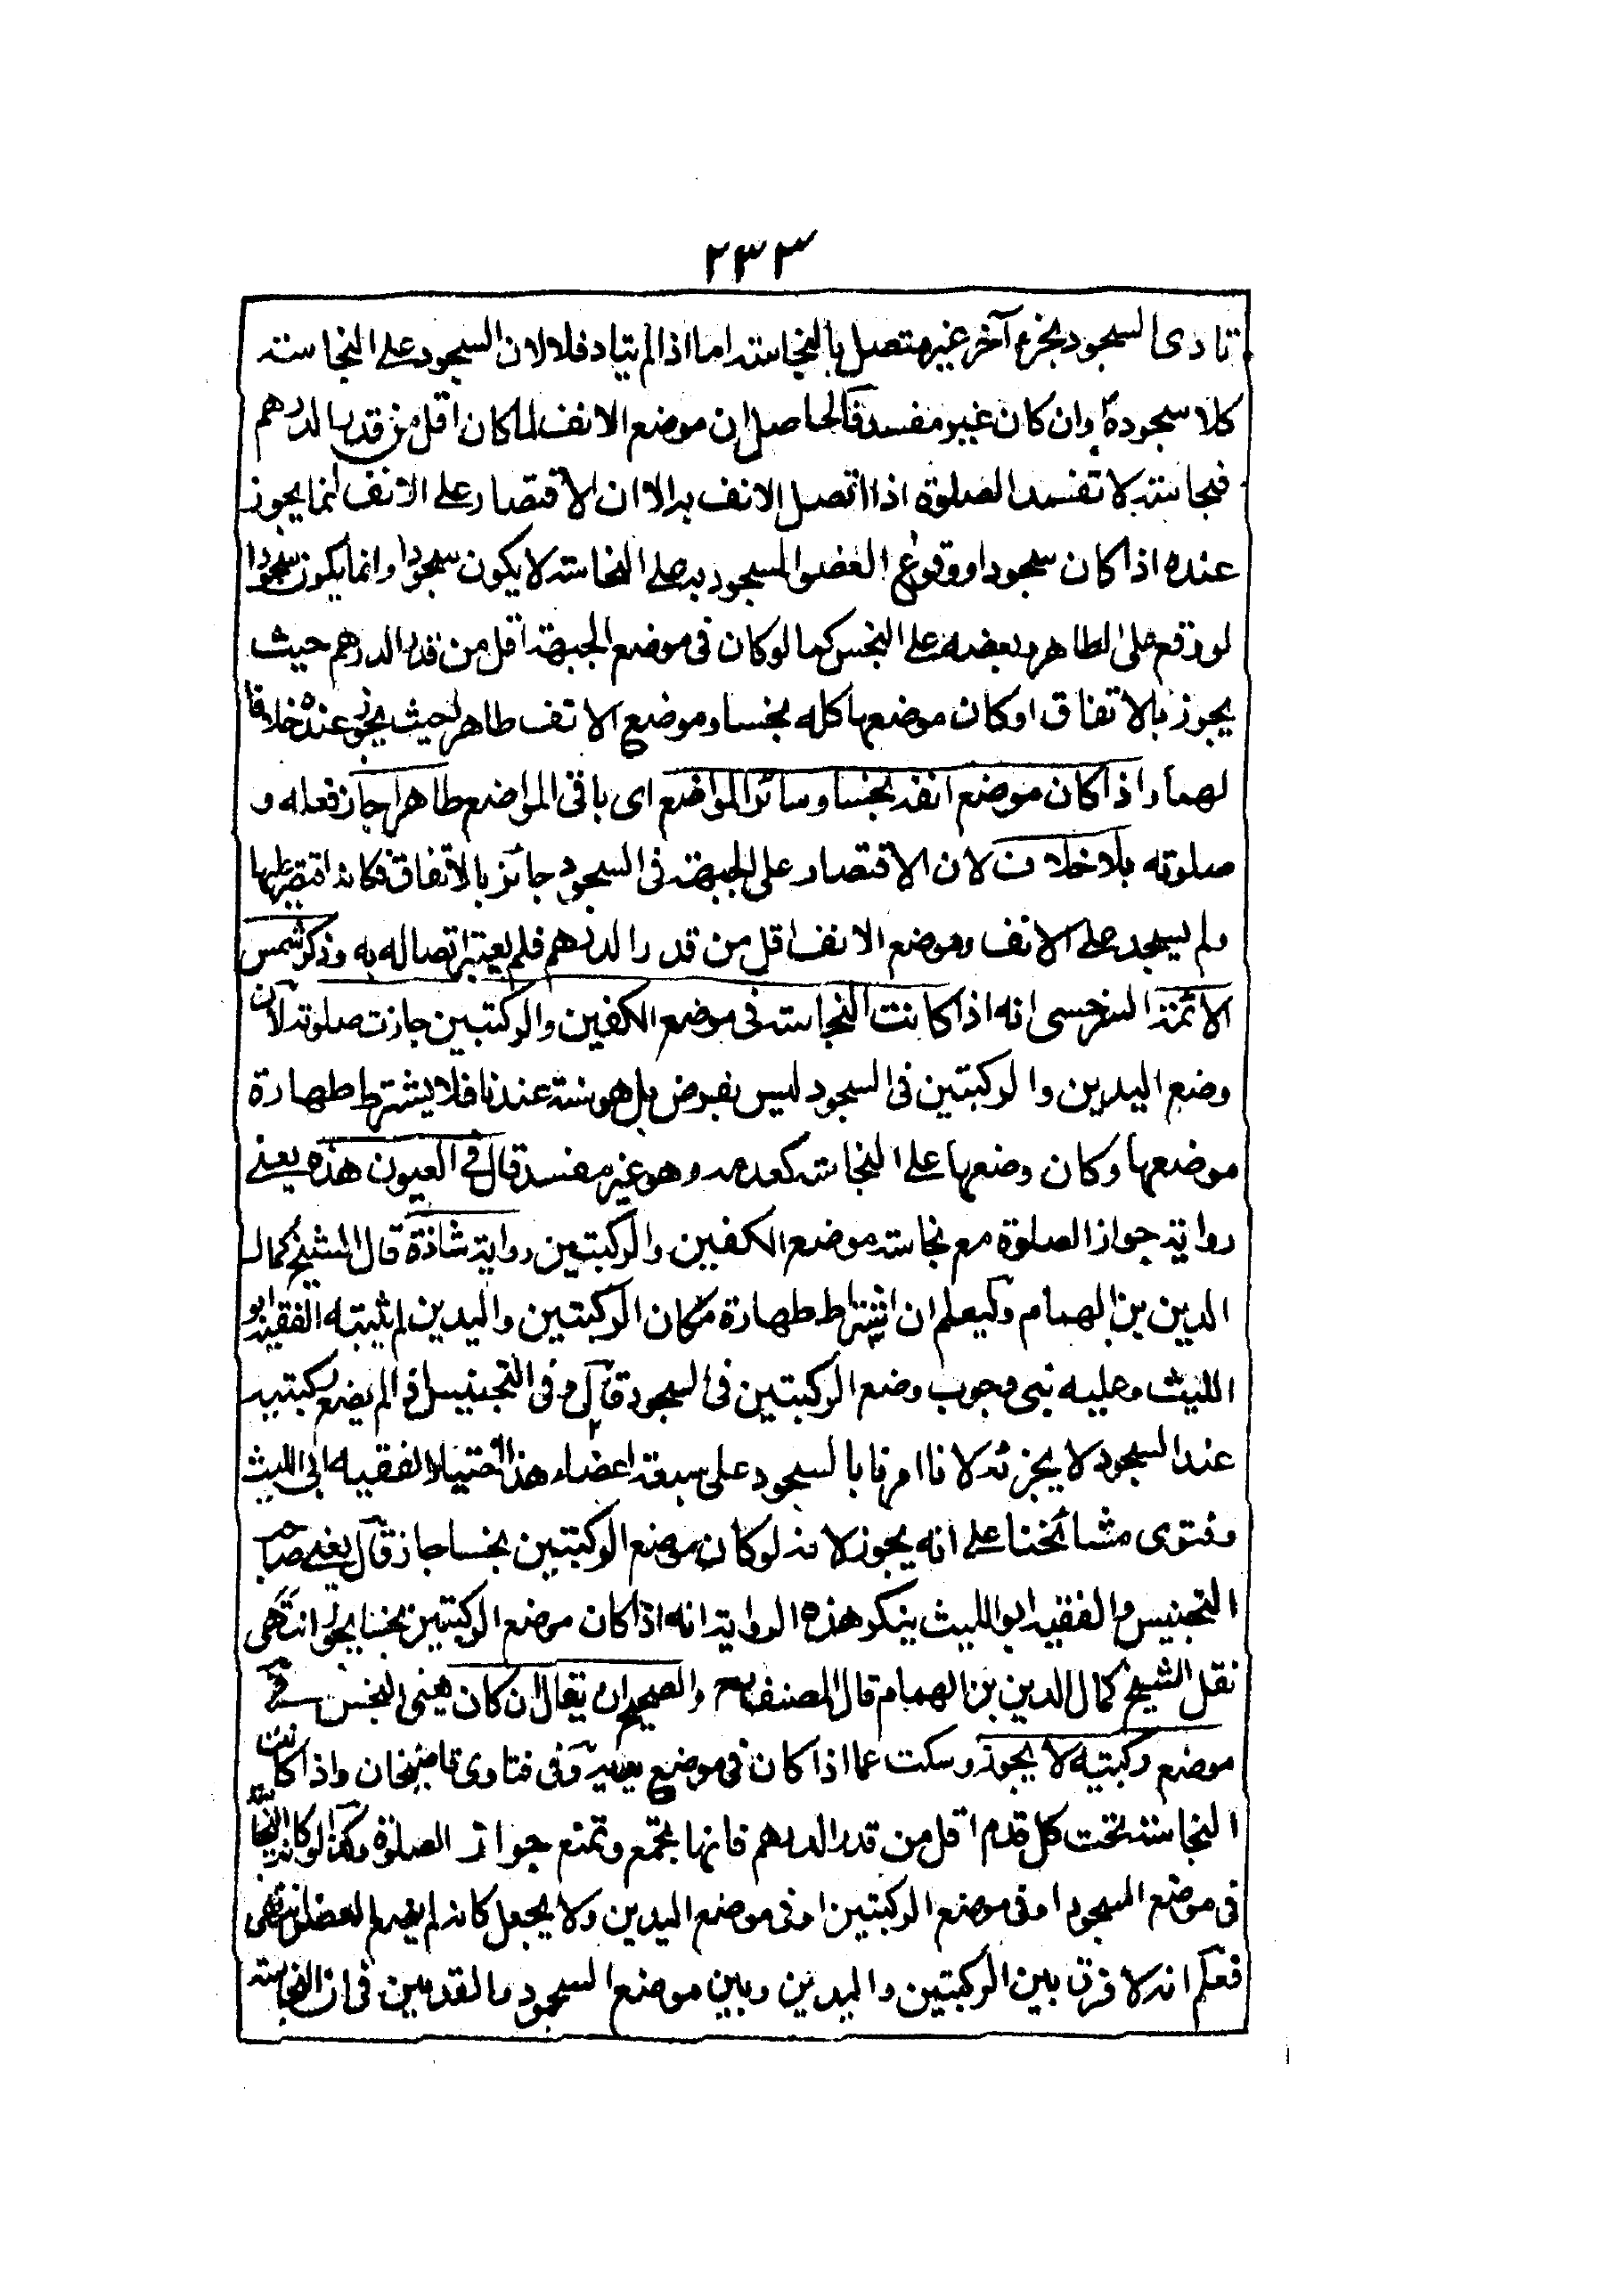 ٢٣٣
تادى السجود بجزء آخر غير متصل بالنجاسته اما اذا لم يتاد فلا لان السجود على النجاسته
كلا سجوده وان كان غير مفسد فالحاصل ان موضع الانف لما كان اقل من قدر الدرهم
فنجاسته لا تفسد الصلوة اذا اتصل الانف به الا ان الاقتصار على الانف انما يجوز
عنده اذا كان سجودا ووقوع العضو المسجود به على النجاسته لا يكون سجودا وانما يكون سجودا
لو وقع على الطاهر وبعضه على النجس كما لو كان فى موضع الجبهة اقل من قدر الدرهم حيث
يجوز بالاتفاق او كان موضعها كله نجسا وموضع الانف طاهر حيث يجوز عنده خلافا
لهما واذا كان موضع انفه نجسا وسائر المواضع اى باقى المواضع طاهرا جاز فعله و
صلوته بلا خلاف لان الاقتصار على الجبهة فى السجود جائز بالاتفاق فكانه اقتصر عليها
ولم يسجد على الانف وموضع الانف اقل من قدر الدرهم فلم يعتبر اتصاله به وذكر شمس
الائمة السرخسى انه اذا كانت النجاسته فى موضع الكفين والركبتين جازت صلوته لان
وضع اليدين والركبتين فى السجود ليس بفرض بل هو سنة عندنا فلا يشترط طهارة
موضعها وكان وضعها على النجاسته كعدمه وهو غير مفسد قال فى العيون هذه يعنى
رواية جواز الصلوة مع نجاسته موضع الكفين والركبتين رواية شاذة قال الشيخ كمال
الدين بن الهمام وليعلم ان اشتراط طهارة مكان الركبتين واليدين لم يثبته الفقيه ابو
الليث وعليه بنى وجوب وضع الركبتين فى السجود قال وفى التجنيس اذا لم يضع ركبتيه
عند السجود لا يجزئه لانا امرنا بالسجود على سبعة اعضاء هذا اختيار الفقيه ابى الليث
وفتوى مشائخنا على انه يجوز لانه لو كان موضع الركبتين نجسا جاز قال يعنى صاحب
التجنيس والفقيه ابو الليث ينكر هذه الرواية انه اذا كان موضع الركبتين نجسا يجوز انتهى
نقل الشيخ كمال الدين بن الهمام قال المصنف رح والصحيح ان يقال ان كان يعنى النجس فى
موضع ركبتيه لا يجوز وسكت عما اذا كان فى موضع يديه وفى فتاوى قاضيخان واذا كانت
النجاسته تحت كل قدم اقل من قدر الدرهم فانها تجمع وتمنع جواز الصلوة وكذا لو كان النجاسته
فى موضع السجود او فى موضع الركبتين او فى موضع اليدين ولا يجعل كانه لم يضع العضو انتهى
فعلم انه لا فرق بين الركبتين واليدين وبين موضع السجود والقدمين فى ان النجاسته